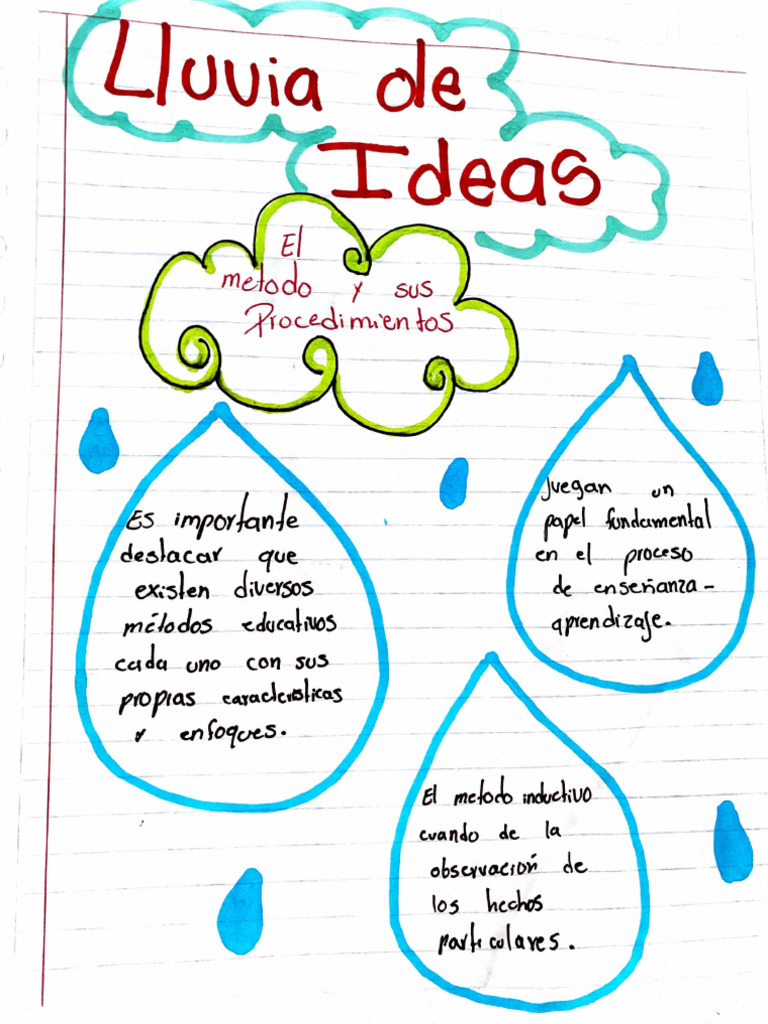 Lluvia de
Ideas
El
metodo y sus
Procedimientos
Es importante
destacar que
existen diversos
métodos educativos
cada uno con sus
propias características
y enfoques.
Juegan un
papel fundamental
en el proceso
de enseñanza-
aprendizaje.
El metodo inductivo
cuando de la
observación de
los hechos
particulares.